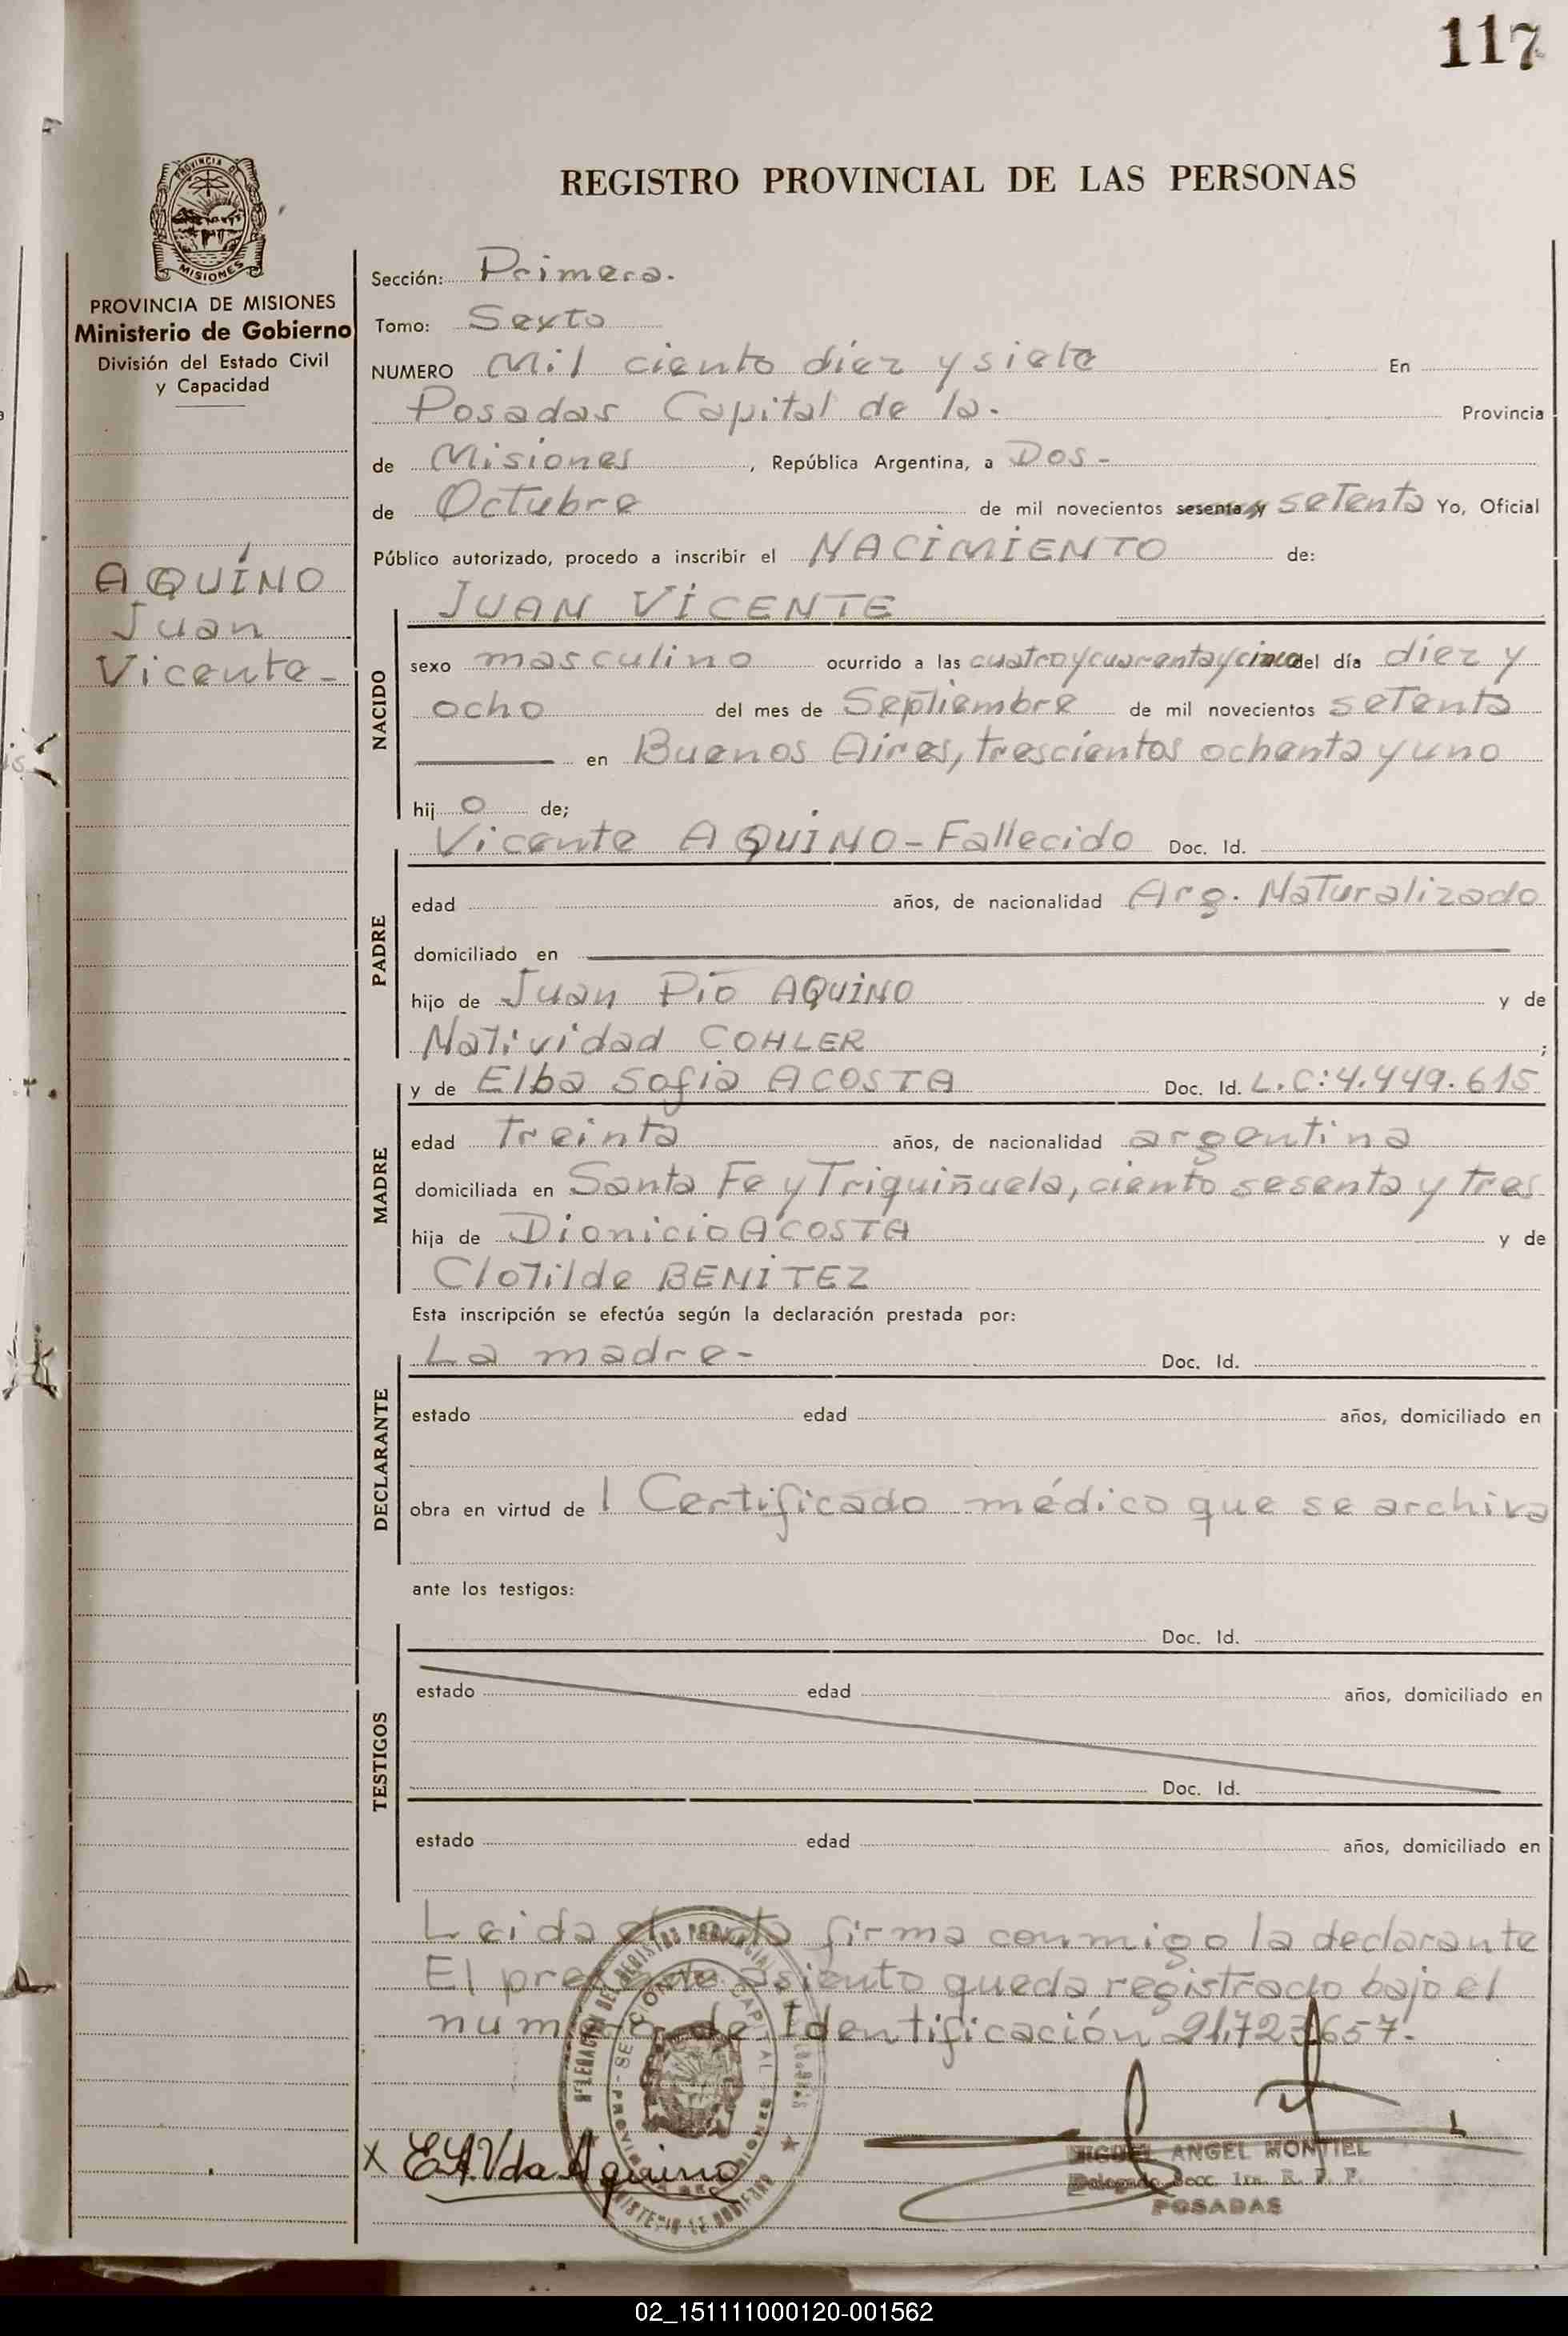 117
PROVINCIA DE
MISIONES
REGISTRO PROVINCIAL DE LAS PERSONAS
PROVINCIA DE MISIONES
Ministerio de Gobierno
División del Estado Civil
y Capacidad
AQUÍNO
Juan
Vicente-
Sección: Primera.
Tomo: Sexto
NUMERO Mil ciento diez y siete En
Posadas Capital de la. Provincia
de Misiones, República Argentina, a Dos-
de Octubre de mil novecientos sesenta y setenta Yo, Oficial
Público autorizado, procedo a inscribir el NACIMIENTO de:
JUAN VICENTE
NACIDO
sexo masculino ocurrido a las cuatro y cuarenta y cinco del día diez y
ocho del mes de Septiembre de mil novecientos setenta
en Buenos Aires, trescientos ochenta y uno
hijo de;
Vicente AQUINO-Fallecido Doc. Id.
PADRE
edad años, de nacionalidad Arg. Naturalizado
domiciliado en
hijo de Juan Pío AQUINO y de
Natividad COHLER ;
y de Elba Sofia ACOSTA Doc. Id. L.C:4.449.615
MADRE
edad treinta años, de nacionalidad argentina
domiciliada en Santa Fe y Triquiñuela, ciento sesenta y tres
hija de Dionicio ACOSTA y de
Clotilde BENITEZ
Esta inscripción se efectúa según la declaración prestada por:
La madre- Doc. Id.
DECLARANTE
estado edad años, domiciliado en
obra en virtud de l Certificado médico que se archiva
ante los testigos:
Doc. Id.
TESTIGOS
estado edad años, domiciliado en
Doc. Id.
estado edad años, domiciliado en
Leida el acta firma conmigo la declarante
El presente asiento queda registrado bajo el
numero de Identificación 21.723.657.
X E.A.Vda Aquino
MIGUEL ANGEL MONTIEL
Delegado Secc. 1ra. R. P. P.
POSADAS
02_151111000120-001562